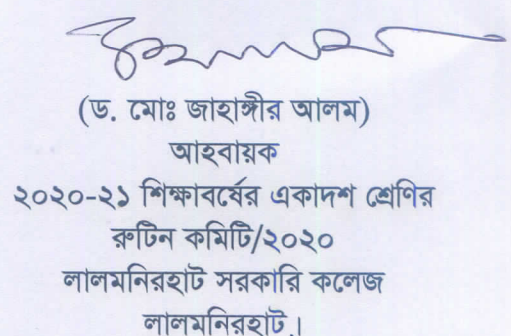 (ড. মোঃ জাহাঙ্গীর আলম)
আহবায়ক
২০২০-২১ শিক্ষাবর্ষের একাদশ শ্রেণির
রুটিন কমিটি/২০২০
লালমনিরহাট সরকারি কলেজ
লালমনিরহাট।